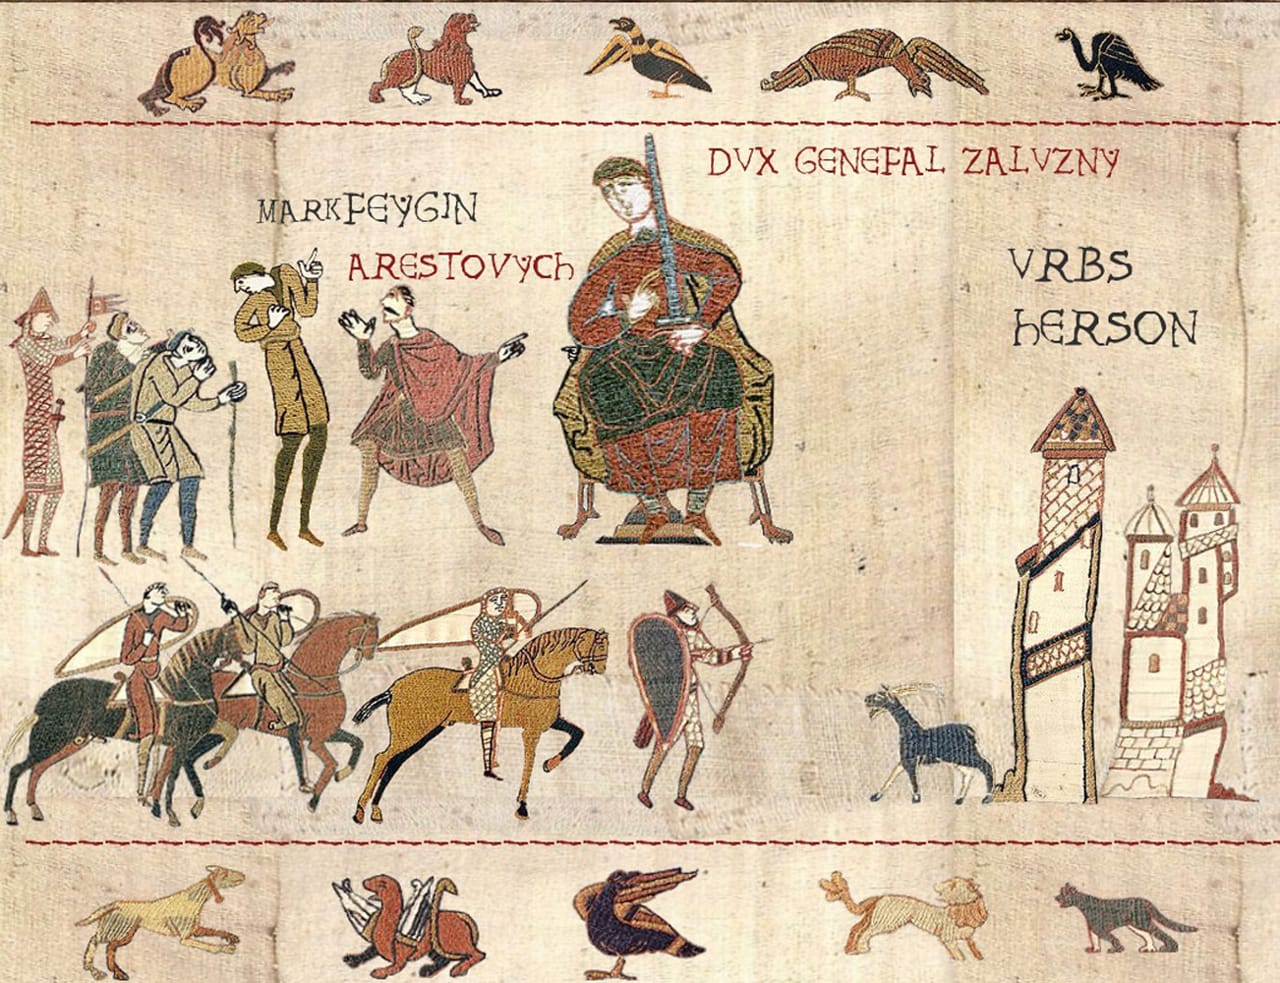 DVX GENEFAL ZALVZNY
MARKFEYGIN
ARESTOVYCh
VRBS
hERSON